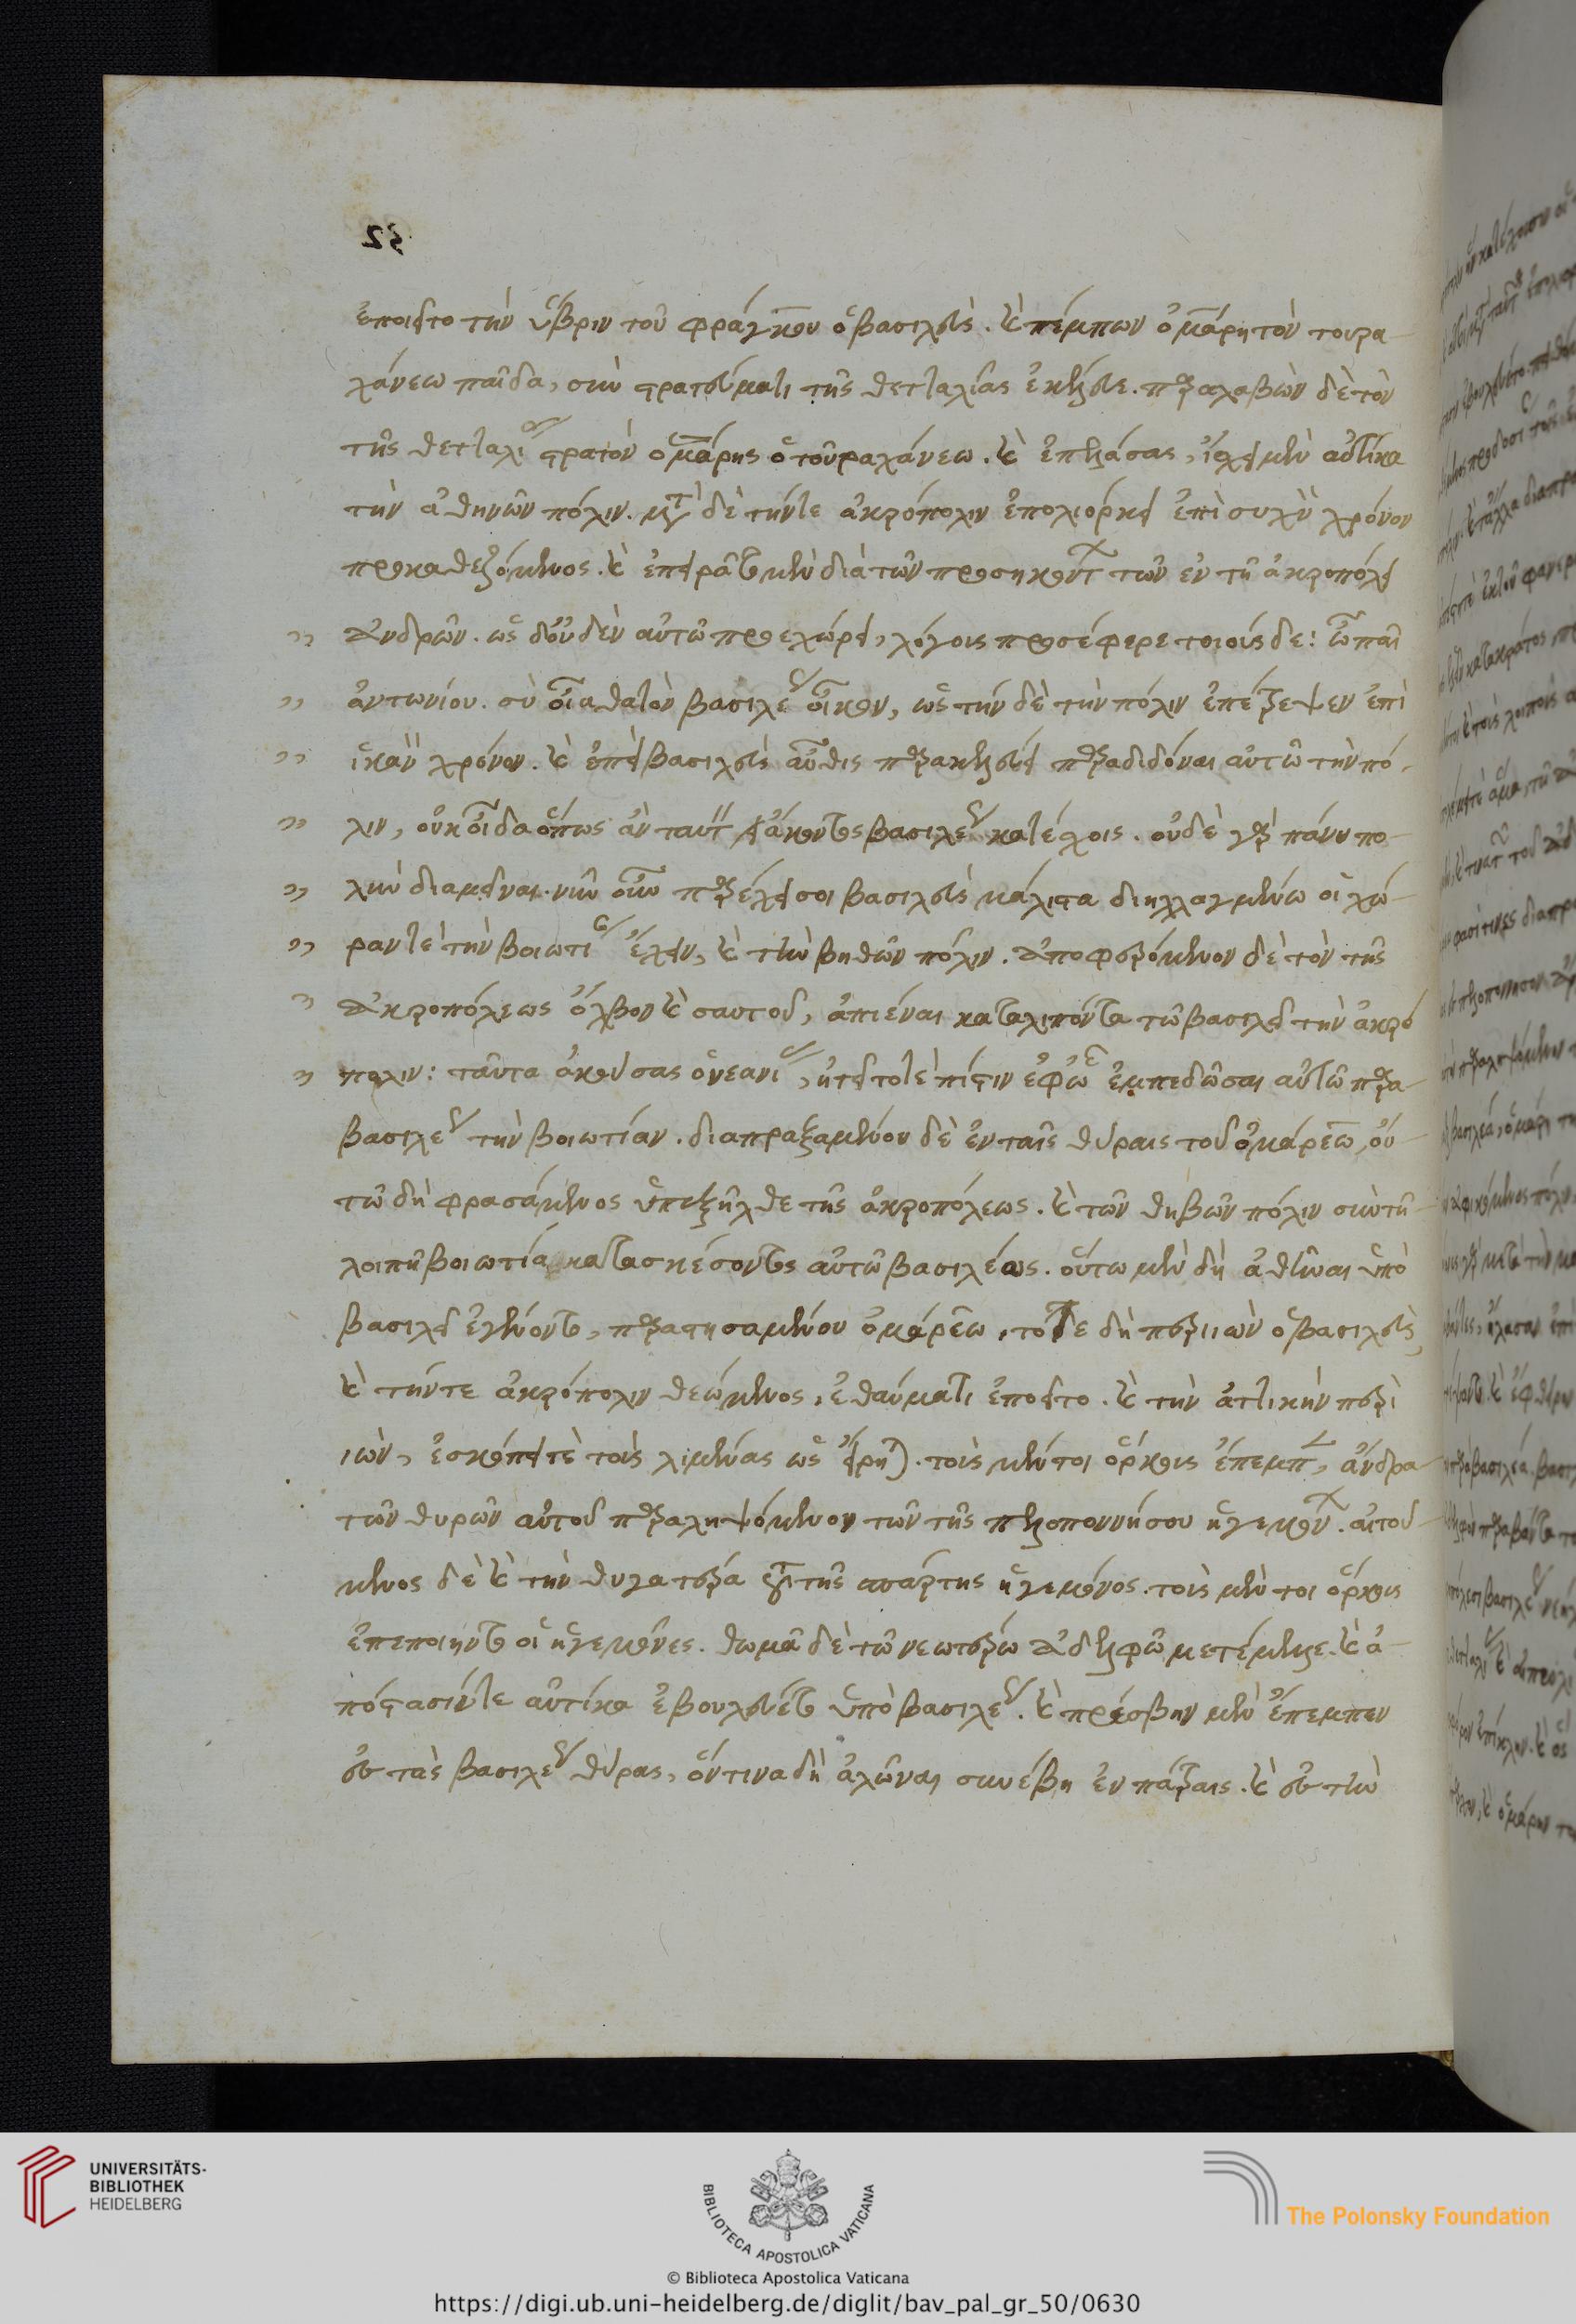 32
ἐποιεῖτο τὴν ὕβριν τοῦ φράγκου ὁ βασιλεύς. καὶ πέμπων ὀμάρη τὸν τουρα-
χάνεω παῖδα, σὺν στρατεύματι τῆς θετταλίας ἐκέλευε. παραλαβὼν δὲ τὸν
τῆς θετταλίας στρατὸν ὀμάρης ὁ τουραχάνεω. καὶ ἐπελάσας, εἶχε μὲν αὐτίκα
τὴν ἀθηνῶν πόλιν. μετὰ δὲ τήν τε ἀκρόπολιν ἐπολιόρκει ἐπὶ συχνὸν χρόνον
προκαθεζόμενος. καὶ ἐπειρᾶτο μὲν διὰ τῶν προσηκόντων τῶν ἐν τῇ ἀκροπόλει
ἀνδρῶν. ὡς δ' οὐδὲν αὐτῷ προεχώρει, λόγοις προσέφερε τοιοῖσδε: ὦ παῖ
ἀντωνίου. σὺ οἶσθα τὸν βασιλέως οἶκον, ὡς τήνδε τὴν πόλιν ἐπέτρεψεν ἐπὶ
ἱκανὸν χρόνον. καὶ ἐπεὶ βασιλεὺς αὖθις παρακελεύει παραδιδόναι αὐτῷ τὴν πό-
λιν, οὐκ οἶδα ὅπως ἂν ταύτην ἄκοντος βασιλέως κατέχοις. οὐδὲ γὰρ πάνυ πο-
λὺν διαμεῖναι. νῦν οὖν παρέχει σοι βασιλεὺς μάλιστα διηλλαγμένῳ οἱ χώ-
ραν τε τὴν βοιωτίας ἔχειν, καὶ τὴν θηβῶν πόλιν. ἀποφερόμενον δὲ τὸν τῆς
ἀκροπόλεως ὄλβον καὶ σαυτοῦ, ἀπιέναι καταλιπόντα τῷ βασιλεῖ τὴν ἀκρό
πολιν: ταῦτα ἀκούσας ὁ νεανίας, ᾐτεῖτό τε πίστιν ἐφ' ᾧ ἐμπεδῶσαι αὐτῷ παρὰ
βασιλέως τὴν βοιωτίαν. διαπραξαμένου δὲ ἐν ταῖς θύραις τοῦ ὀμάρεω, οὑ-
τῶ δὴ φρασάμενος ὑπεξῆλθε τῆς ἀκροπόλεως. καὶ τῶν θηβῶν πόλιν σὺν τῇ
λοιπῇ βοιωτίᾳ κατασχέσοντος αὐτῷ βασιλέως. οὕτω μὲν δὴ ἀθῆναι ὑπὸ
βασιλεῖ ἐγένοντο, παραστησαμένου ὀμάρεω, τότε δὴ περιιὼν ὁ βασιλεύς,
καὶ τήν τε ἀκρόπολιν θεώμενος, ἐθαύματι ἐποιεῖτο. καὶ τὴν ἀττικὴν περὶ
ιών, ἐσκόπει τὲ τοὺς λιμένας ὡς εἴρηται. τοὺς μέντοι ὅρκους ἔπεμπεν, ἄνδρα
τῶν θυρῶν αὐτοῦ παραληψόμενον τῶν τῆς πελοποννήσου ἡγεμόνων. αἰτού
μενος δὲ καὶ τὴν θυγατέρα τῆς σπάρτης ἡγεμόνος. τοὺς μέν τοι ὅρκους
ἐπεποίηντο οἱ ἡγεμόνες. θωμᾶ δὲ τῷ νεωτέρῳ ἀδελφῷ μετέμελε. καὶ ἀ-
πόστασίν τε αὐτίκα ἐβουλεύετο ὑπὸ βασιλέως. καὶ πρέσβην μὲν ἔπεμπεν
ἐς τὰς βασιλέως θύρας, ὅντινα δὴ ἁλῶναι συνέβη ἐν πάτραις. καὶ ἐς τὴν
UNIVERSITÄTS-
BIBLIOTHEK
HEIDELBERG
BIBLIOTECA APOSTOLICA VATICANA
The Polonsky Foundation
© Biblioteca Apostolica Vaticana
https://digi.ub.uni-heidelberg.de/diglit/bav_pal_gr_50/0630